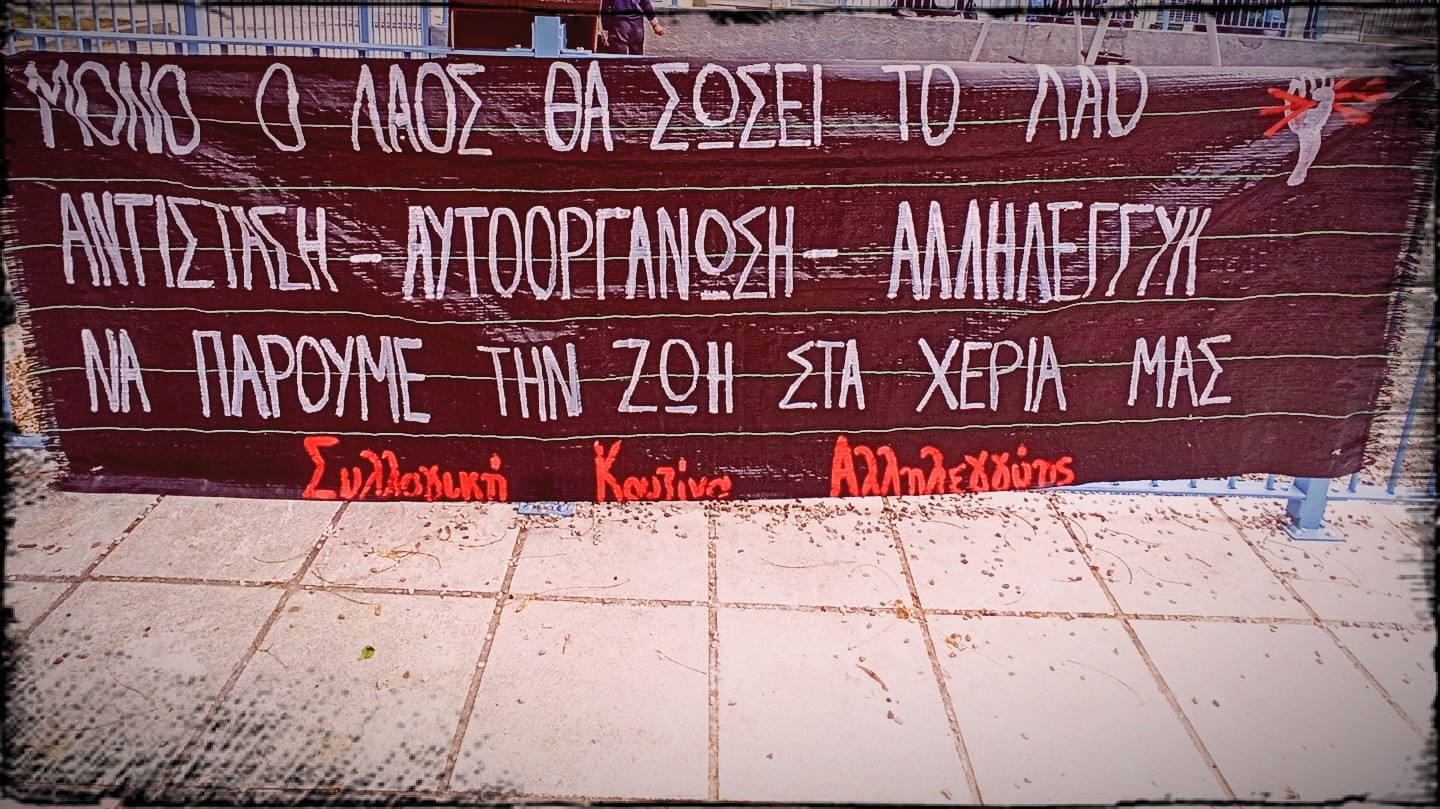 ΜΟΝΟ Ο ΛΑΟΣ ΘΑ ΣΩΣΕΙ ΤΟ ΛΑΟ
ΑΝΤΙΣΤΑΣΗ - ΑΥΤΟΟΡΓΑΝΩΣΗ - ΑΛΛΗΛΕΓΓΥΗ
ΝΑ ΠΑΡΟΥΜΕ ΤΗΝ ΖΩΗ ΣΤΑ ΧΕΡΙΑ ΜΑΣ
Συλλογική Κουζίνα Αλληλεγγύης